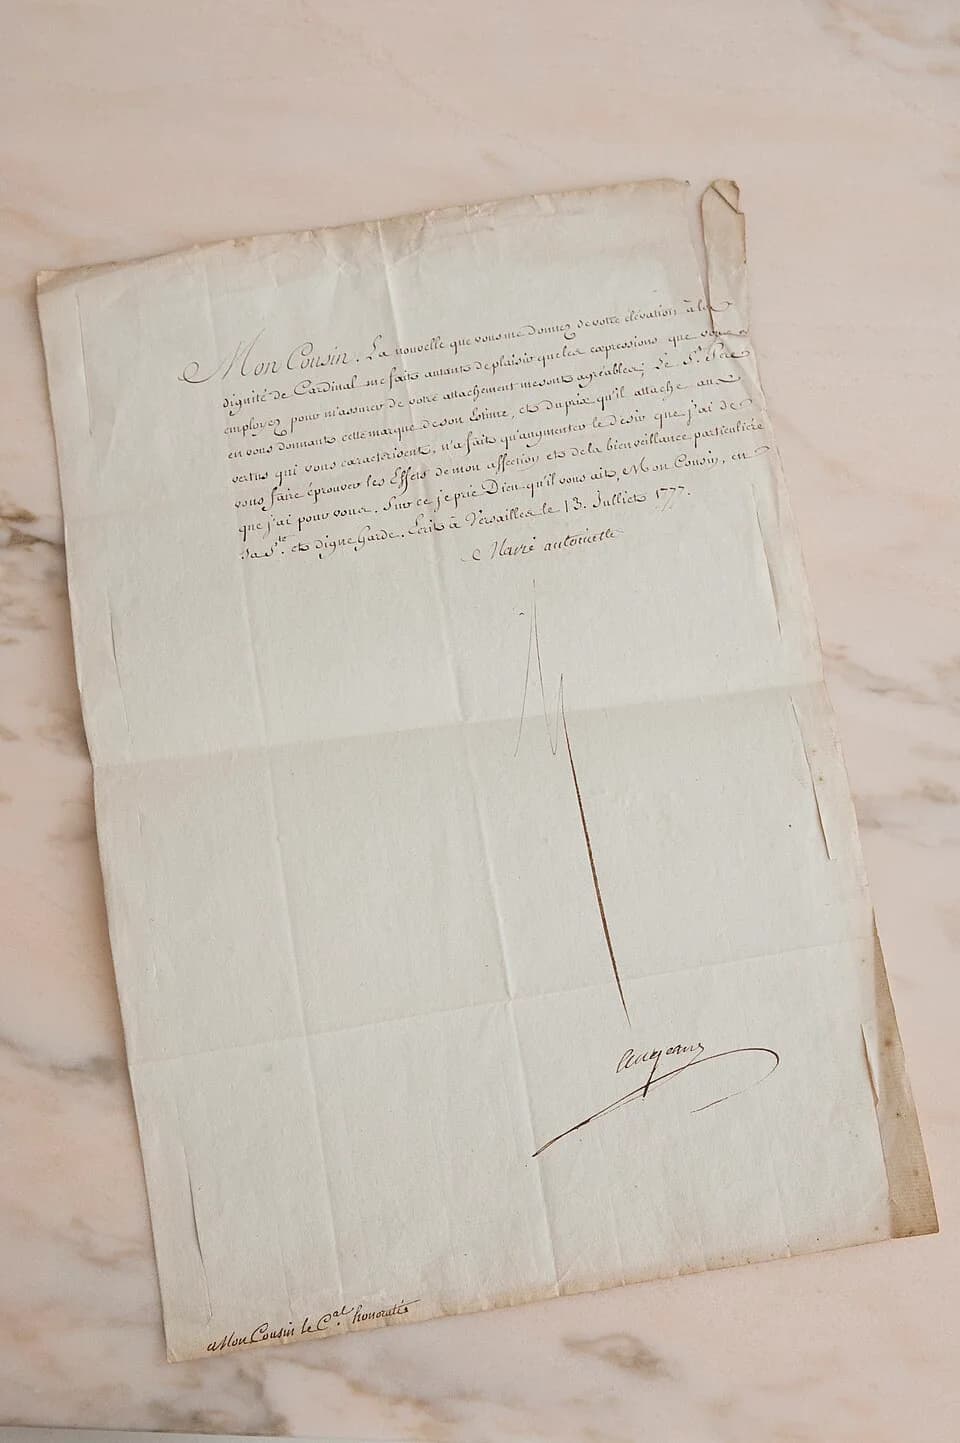 Mon Cousin. La nouvelle que vous me donnez de votre élévation à la
dignité de Cardinal me fait autant de plaisir que les expressions que vous
employez pour m'assurer de votre attachement me sont agréables; Le St. Pere
en vous donnant cette marque de son Estime, et du prix qu'il attache aux
vertus qui vous caractérisent, n'a fait qu'augmenter le desir que j'ai de
vous faire éprouver les Effets de mon affection et de la bienveillance particuliere
que j'ai pour vous. Sur ce je prie Dieu qu'il vous ait, Mon Cousin, en
sa Ste. et digne Garde. Ecrit à Versailles le 13. Juillet 1777.
Marie antoinette
Augeard
a Mon Cousin le Cal. honorati